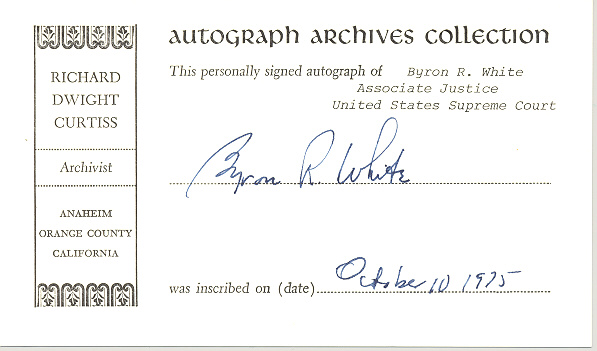 autograph archives collection
RICHARD
DWIGHT
CURTISS
Archivist
ANAHEIM
ORANGE COUNTY
CALIFORNIA
This personally signed autograph of Byron R. White
Associate Justice
United States Supreme Court
Byron R White
was inscribed on (date) October 10 1975